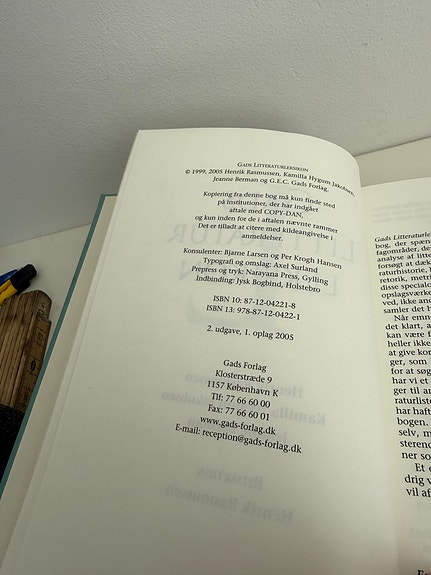 GADS LITTERATURLEKSIKON
© 1999, 2005 Henrik Rasmussen, Kamilla Hygum Jakobsen,
Jeanne Berman og G.E.C. Gads Forlag.
Kopiering fra denne bog må kun finde sted
på institutioner, der har indgået
aftale med COPY-DAN,
og kun inden for de i aftalen nævnte rammer
Det er tilladt at citere med kildeangivelse i
anmeldelser.
Konsulenter: Bjarne Larsen og Per Krogh Hansen
Typografi og omslag: Axel Surland
Prepress og tryk: Narayana Press, Gylling
Indbinding: Jysk Bogbind, Holstebro
ISBN 10: 87-12-04221-8
ISBN 13: 978-87-12-0422-1
2. udgave, 1. oplag 2005
Gads Forlag
Klosterstræde 9
1157 København K
Tlf: 77 66 60 00
Fax: 77 66 60 01
www.gads-forlag.dk
E-mail: reception@gads-forlag.dk
Gads Litteraturle
bog, der spæn
fagområder, de
analyse af litte
forsøgt at dæk
raturhistorie, l
retorik, metri
disse specialo
opslagsværke
ved, ikke and
samler det h
Når emne
det klart, a
kan være f
heller ikke
at give kor
ger, som
for at søg
har vi et
ger til an
raturliste
har haft
bogen.
selv, m
sterend
ner so
Et
drig v
vil af